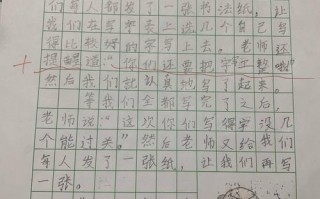 们每人都发了一张书法纸，让
我们在写字表上选几个自己写
得比较好的字写上去。老师还
提醒道："你们还要把字工整哦"
然后我们就认真地写了起来。
等我们全都写完了之后，
老师说："这次你们写得字没几
个能过关。"然后老师又给我们
每人发了一张纸，让我们再写
一张。